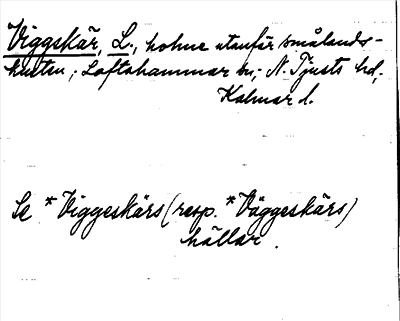 Viggskär, L., holme utanför smålands-
kusten; Loftahammar sn; N. Tjusts hd,
Kalmar l.
Se *Viggeskärs (resp. *Väggeskärs)
hällar.